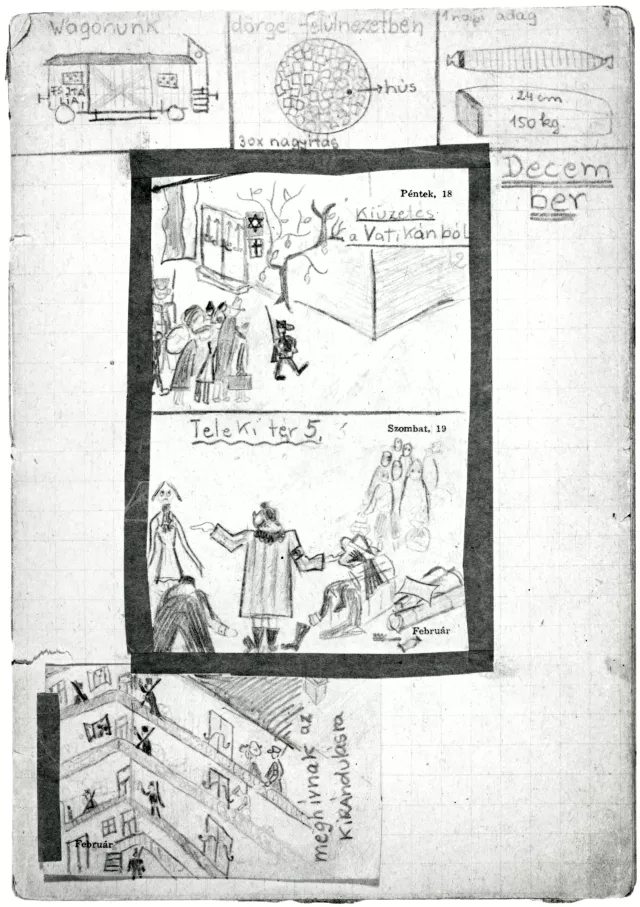 Wagonunk
dörge felülnezetben
1 napi adag
hús
30x nagyitás
24 cm
150 kg.
Decem
ber
Péntek, 18
Kiüzetés
a Vatikánból
Teleki tér 5.
Szombat, 19
Február
meghívnak az
Kirándulásra
Február